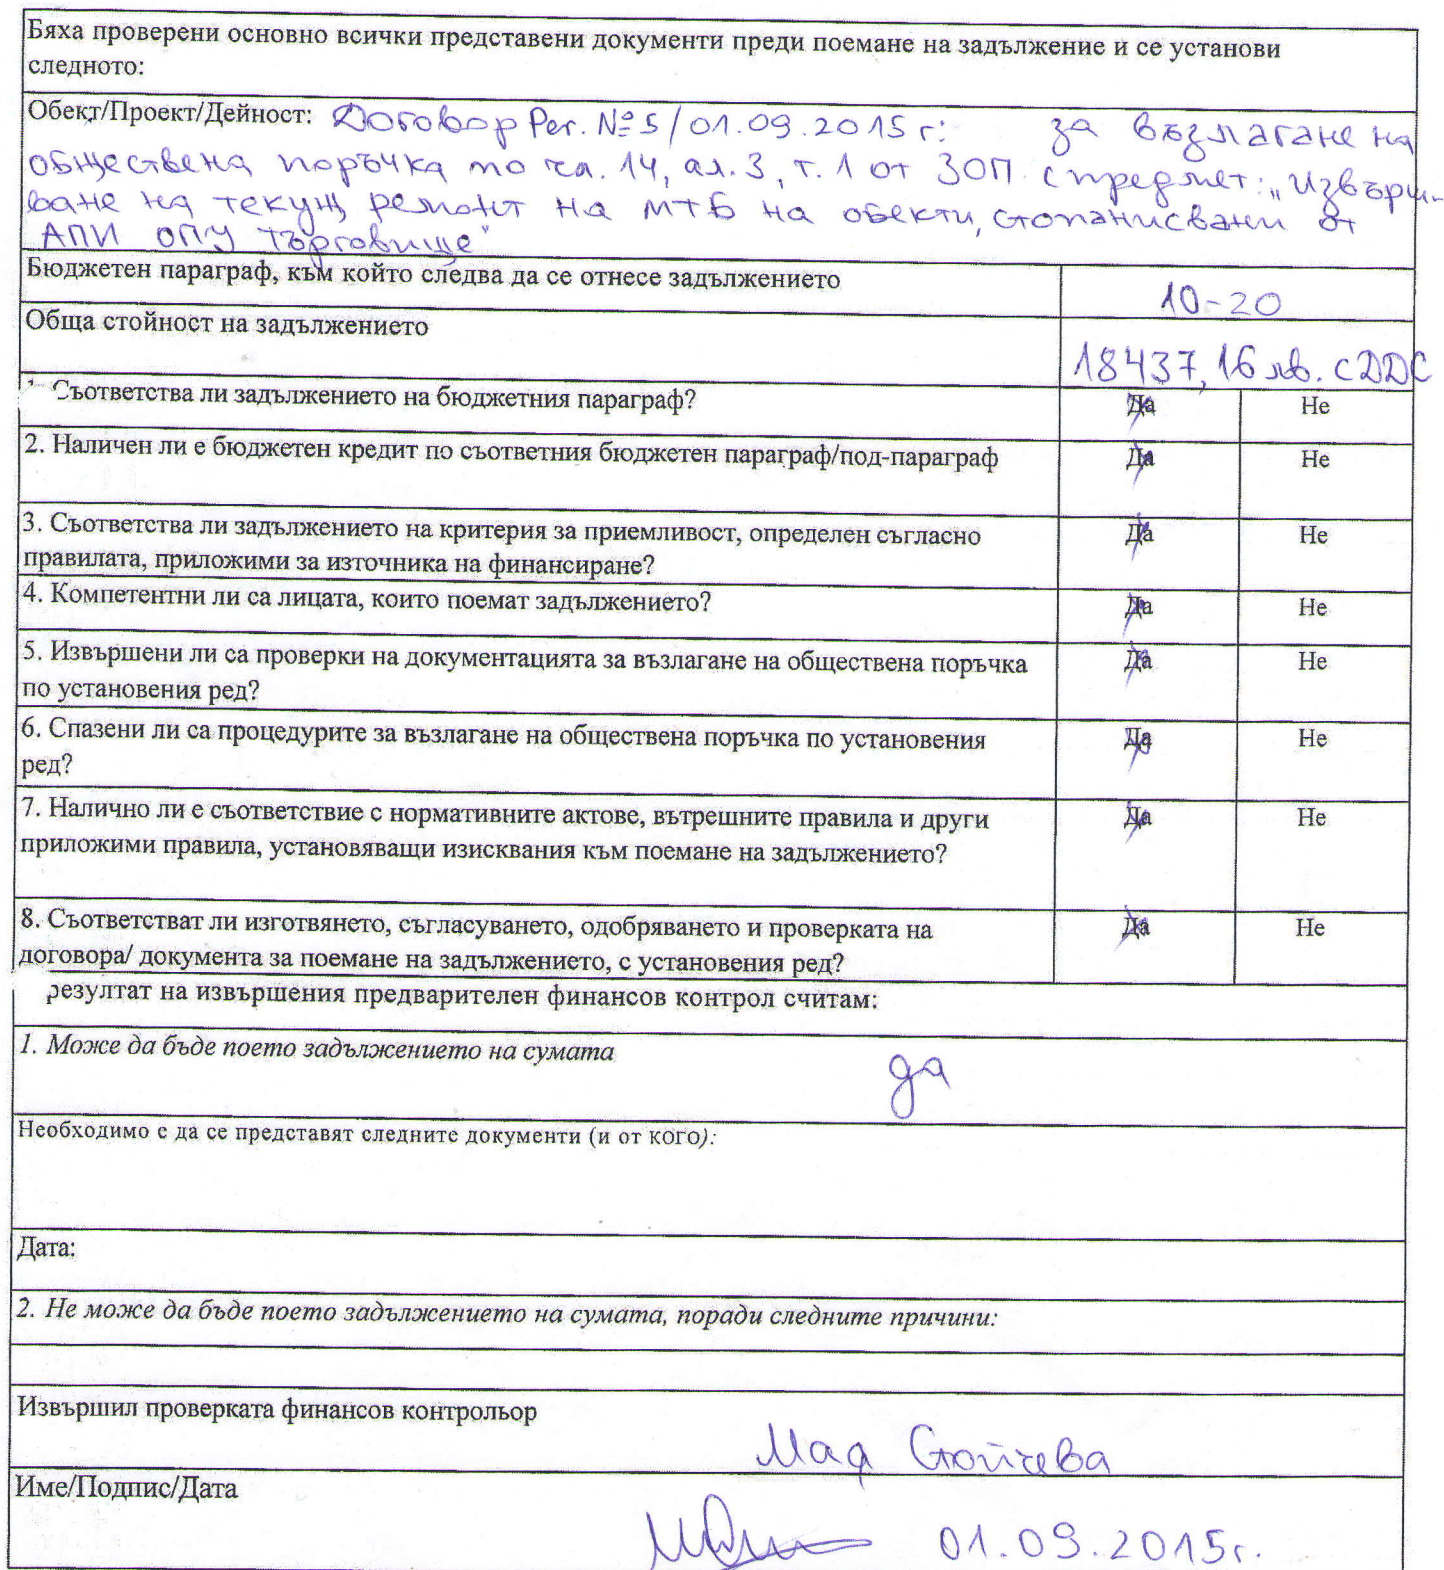 Бяха проверени основно всички представени документи преди поемане на задължение и се установи
следното:
Обект/Проект/Дейност: Договор Рег. №5/01.09.2015 г: за възлагане на
обществена поръчка по чл. 14, ал. 3, т. 1 от ЗОП с предмет: „Извърш-
ване на текущ ремонт на МТБ на обекти, стопанисвани от
АПИ ОПУ Търговище"
Бюджетен параграф, към който следва да се отнесе задължението 10-20
Обща стойност на задължението 18437,16 лв. с ДДС
Съответства ли задължението на бюджетния параграф? Да Не
2. Наличен ли е бюджетен кредит по съответния бюджетен параграф/под-параграф Да Не
3. Съответства ли задължението на критерия за приемливост, определен съгласно Да Не
правилата, приложими за източника на финансиране?
4. Компетентни ли са лицата, които поемат задължението? Да Не
5. Извършени ли са проверки на документацията за възлагане на обществена поръчка Да Не
по установения ред?
6. Спазени ли са процедурите за възлагане на обществена поръчка по установения Да Не
ред?
7. Налично ли е съответствие с нормативните актове, вътрешните правила и други Да Не
приложими правила, установяващи изисквания към поемане на задължението?
8. Съответстват ли изготвянето, съгласуването, одобряването и проверката на Да Не
договора/ документа за поемане на задължението, с установения ред?
резултат на извършения предварителен финансов контрол считам:
1. Може да бъде поето задължението на сумата да
Необходимо е да се представят следните документи (и от кого):
Дата:
2. Не може да бъде поето задължението на сумата, поради следните причини:
Извършил проверката финансов контрольор
Мая Стойчева
Име/Подпис/Дата
01.09.2015г.